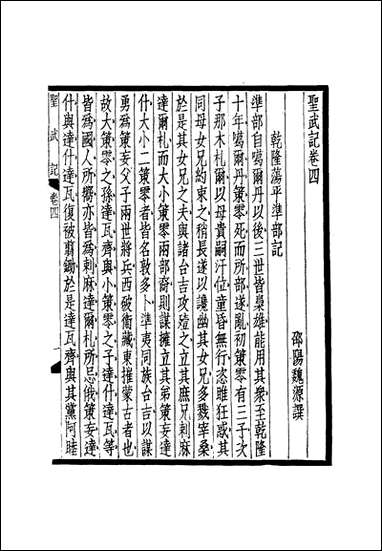 聖武記卷四
邵陽魏源譔
乾隆蕩平準部記
準部自噶爾丹以後三世皆梟雄能用其衆至乾隆
十年噶爾丹策零死而所部遂亂初策零有三子次
子那木札爾以母貴嗣汗位童昏無行恣雎狂惑其
同母女兄約束之稍長遂以讒幽其女兄多戮宰桑
於是其女兄之夫與諸台吉攻殪之立其庶兄刺麻
達爾札而大小策零兩部裔則謀擁立其弟策妄達
什大小二策零者皆名敦多卜準夷同族台吉以謀
勇爲策妄父子兩世將兵西破衞藏東摧蒙古者也
故大策零之孫達瓦齊與小策零之子達什達瓦等
皆爲國人所嚮亦皆爲刺麻達爾札所忌俄策妄達
什與達什達瓦復被翦鋤於是達瓦齊與其黨阿睦
聖武記
卷四
一